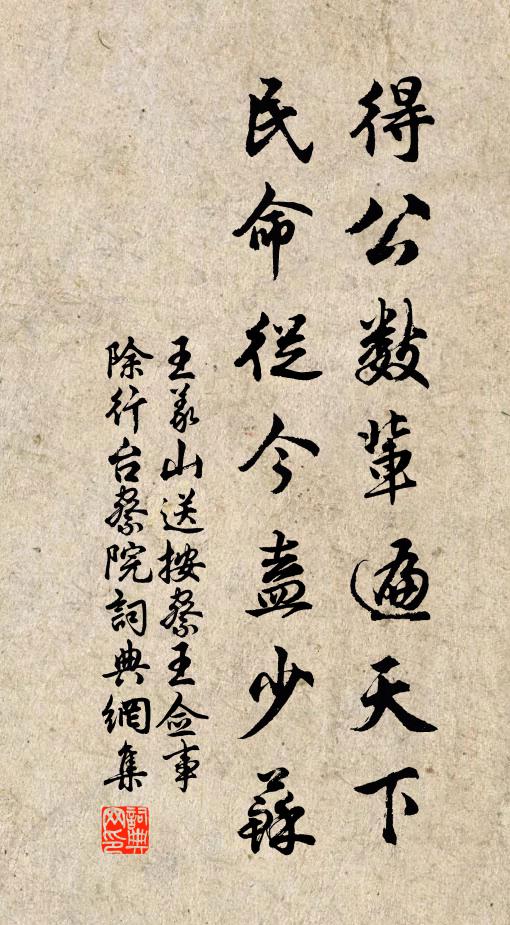 得公數輩遍天下
民命從今盍少蘇
王義山送按察王僉事
除行台察院詞典網集
詞典网印